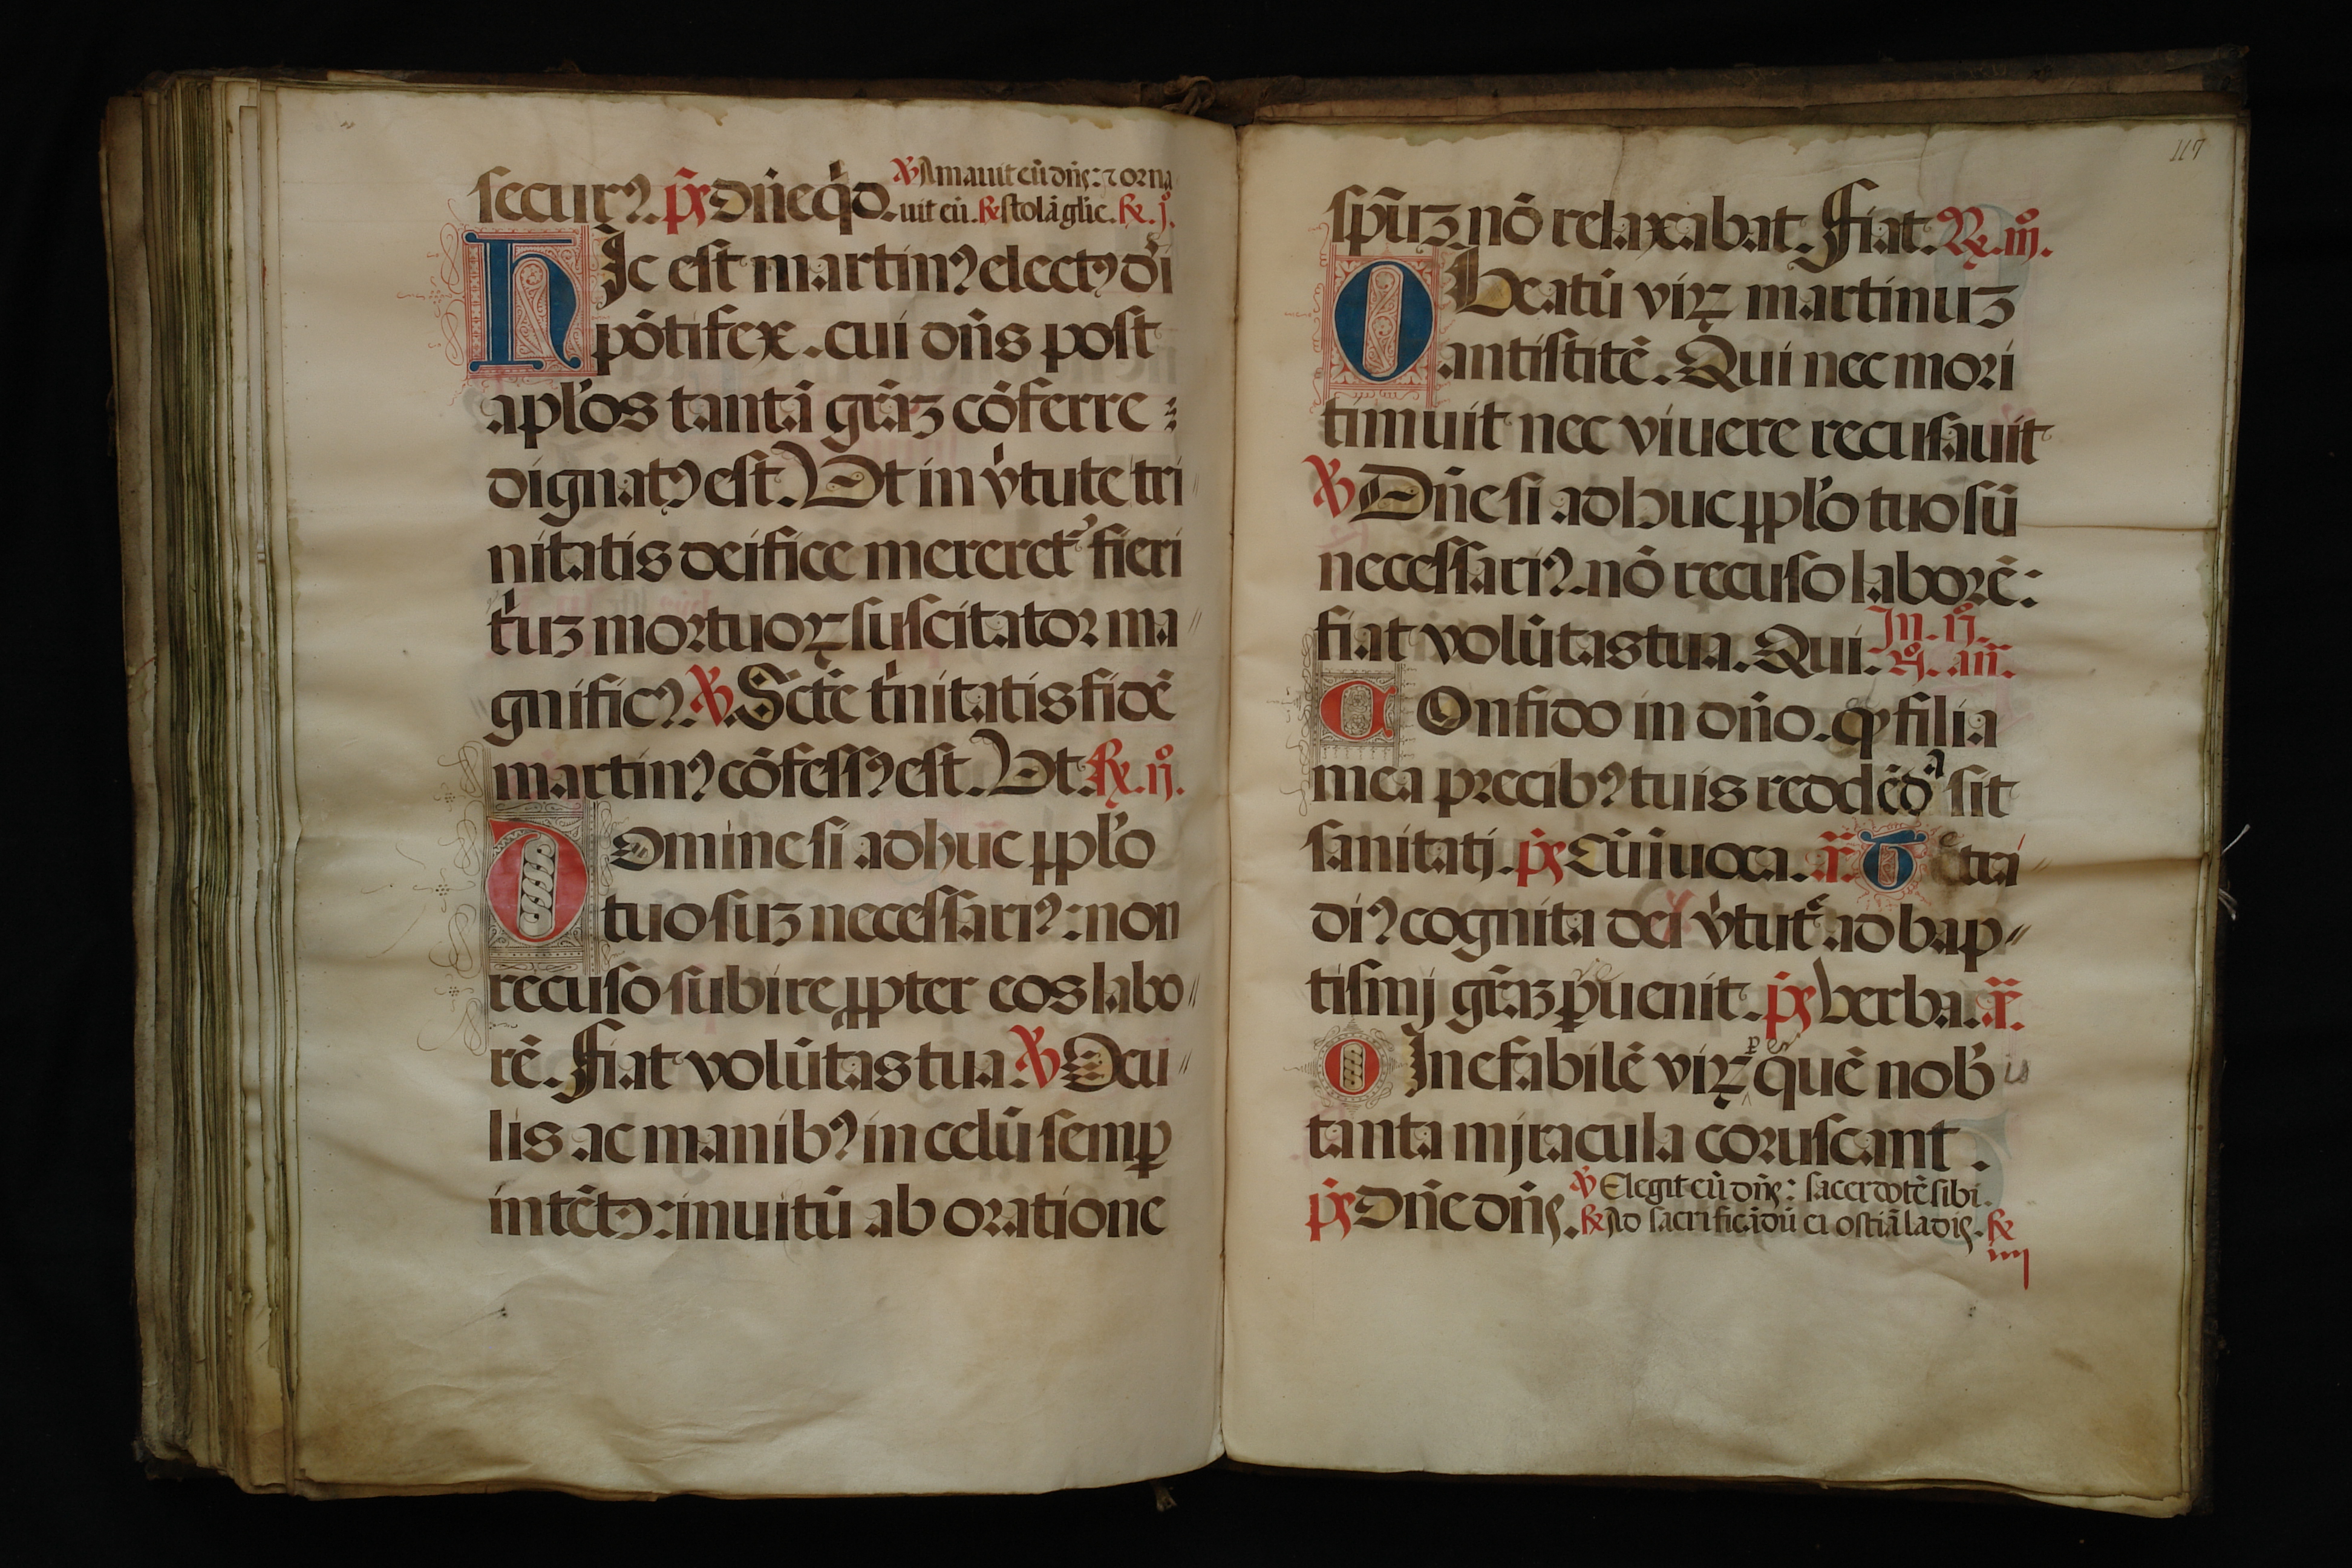 secur⁹. p̃s Dñeq̇ꝺ. ℣ Amauit eū dñs: ⁊ orna
uit eū. ℟ stolā glīe. ℟. j.
hIc est martin⁹ elect⁹ dī
pōtifex. cui dñs post
apl'os tantā gr̄aʒ cōferre
dignat⁹ est. Vt in v̓tute tri
nitatis deifice mereret᷑ fieri
t̓uʒ mortuoꝝ suscitator ma
gnific⁹. ℣. Scte t̓nitatis fidē
martin⁹ cōfess⁹ est. Vt. ℟. ij.
Domine si adhuc ꝓpl'o
tuo suʒ necessari⁹: non
recuso subire ꝓpter eos labo
rē. Fiat volūtas tua. ℣ Ocu
lis ac manib⁹ in celū semꝑ
intēt⁹: inuitū ab oratione
117
sp̄uʒ nō relaxabat. Fiat. ℟. iij.
O Beatū viꝝ martinuʒ
antistitē. Qui nec mori
timuit nec viuere recusauit
℣ Dñe si adhuc ꝓpl'o tuo sū
necessari⁹. nō recuso laborē:
fiat volūtas tua. Qui. In. ij.
n̊. añ.
COnfido in dño. ꝙ filia
mea precib⁹ tuis reddēdᵃ sit
sanitatj. p̃s Cū īuoca. ā. Tetra
di⁹ cognita dei v̓tutē ad bap
tismj gr̄aʒ ꝑuenit. p̃s Verba. ā.
O Inefabilē viꝝ quē nob̓ is
tanta mjracula coruscant.
p̃s Dñe dñs. ℣ Elegit eū dñs: sacerdotē sibi.
℟ Ad sacrificādū ei ostiā ladis. ℟
iiij